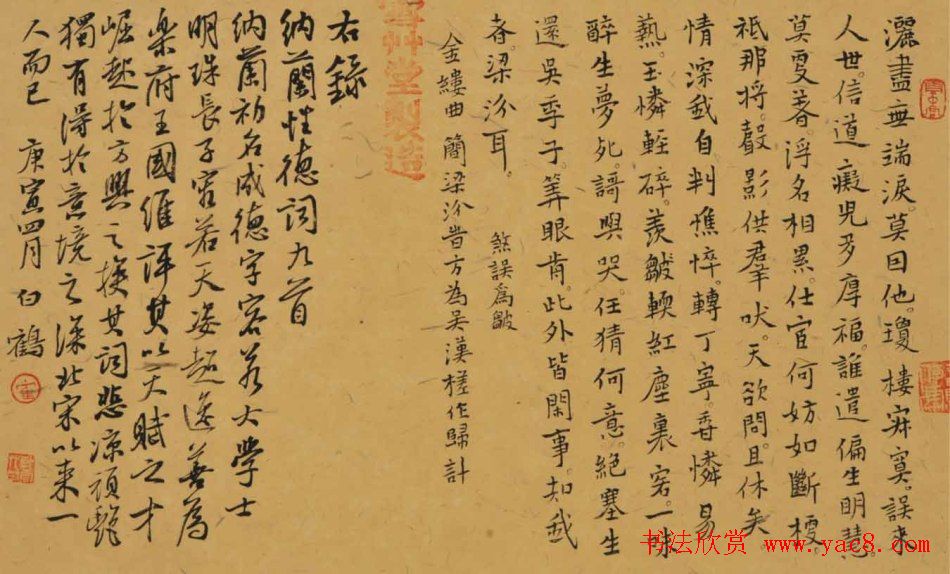 灑盡無端淚。莫因他。瓊樓寂寞。誤來
人世。信道癡兒多厚福。誰遣偏生明慧。
莫更著。浮名相累。仕宦何妨如斷梗。
祗那將。聲影供羣吠。天欲問。且休矣
情深我自判憔悴。轉丁寧。香憐易
爇。玉憐輕碎。羨皺輭紅塵裏客。一味
醉生夢死。謌與哭。任猜何意。絕塞生
還吳季子。筭眼前。此外皆閒事。知我
者。梁汾耳。 煞誤爲皺
金縷曲 簡梁汾昔方為吳漢槎作歸計
艸堂製造
右錄
納蘭性德詞九首
納蘭初名成德字容若大學士
明珠長子容若天姿超逸善為
樂府王國維評其以天賦之才
崛起於方興之族其詞悲涼頑艷
獨有得於意境之深北宋以來一
人而已 庚寅四月 白鶴
书法欣赏 www.yac8.com